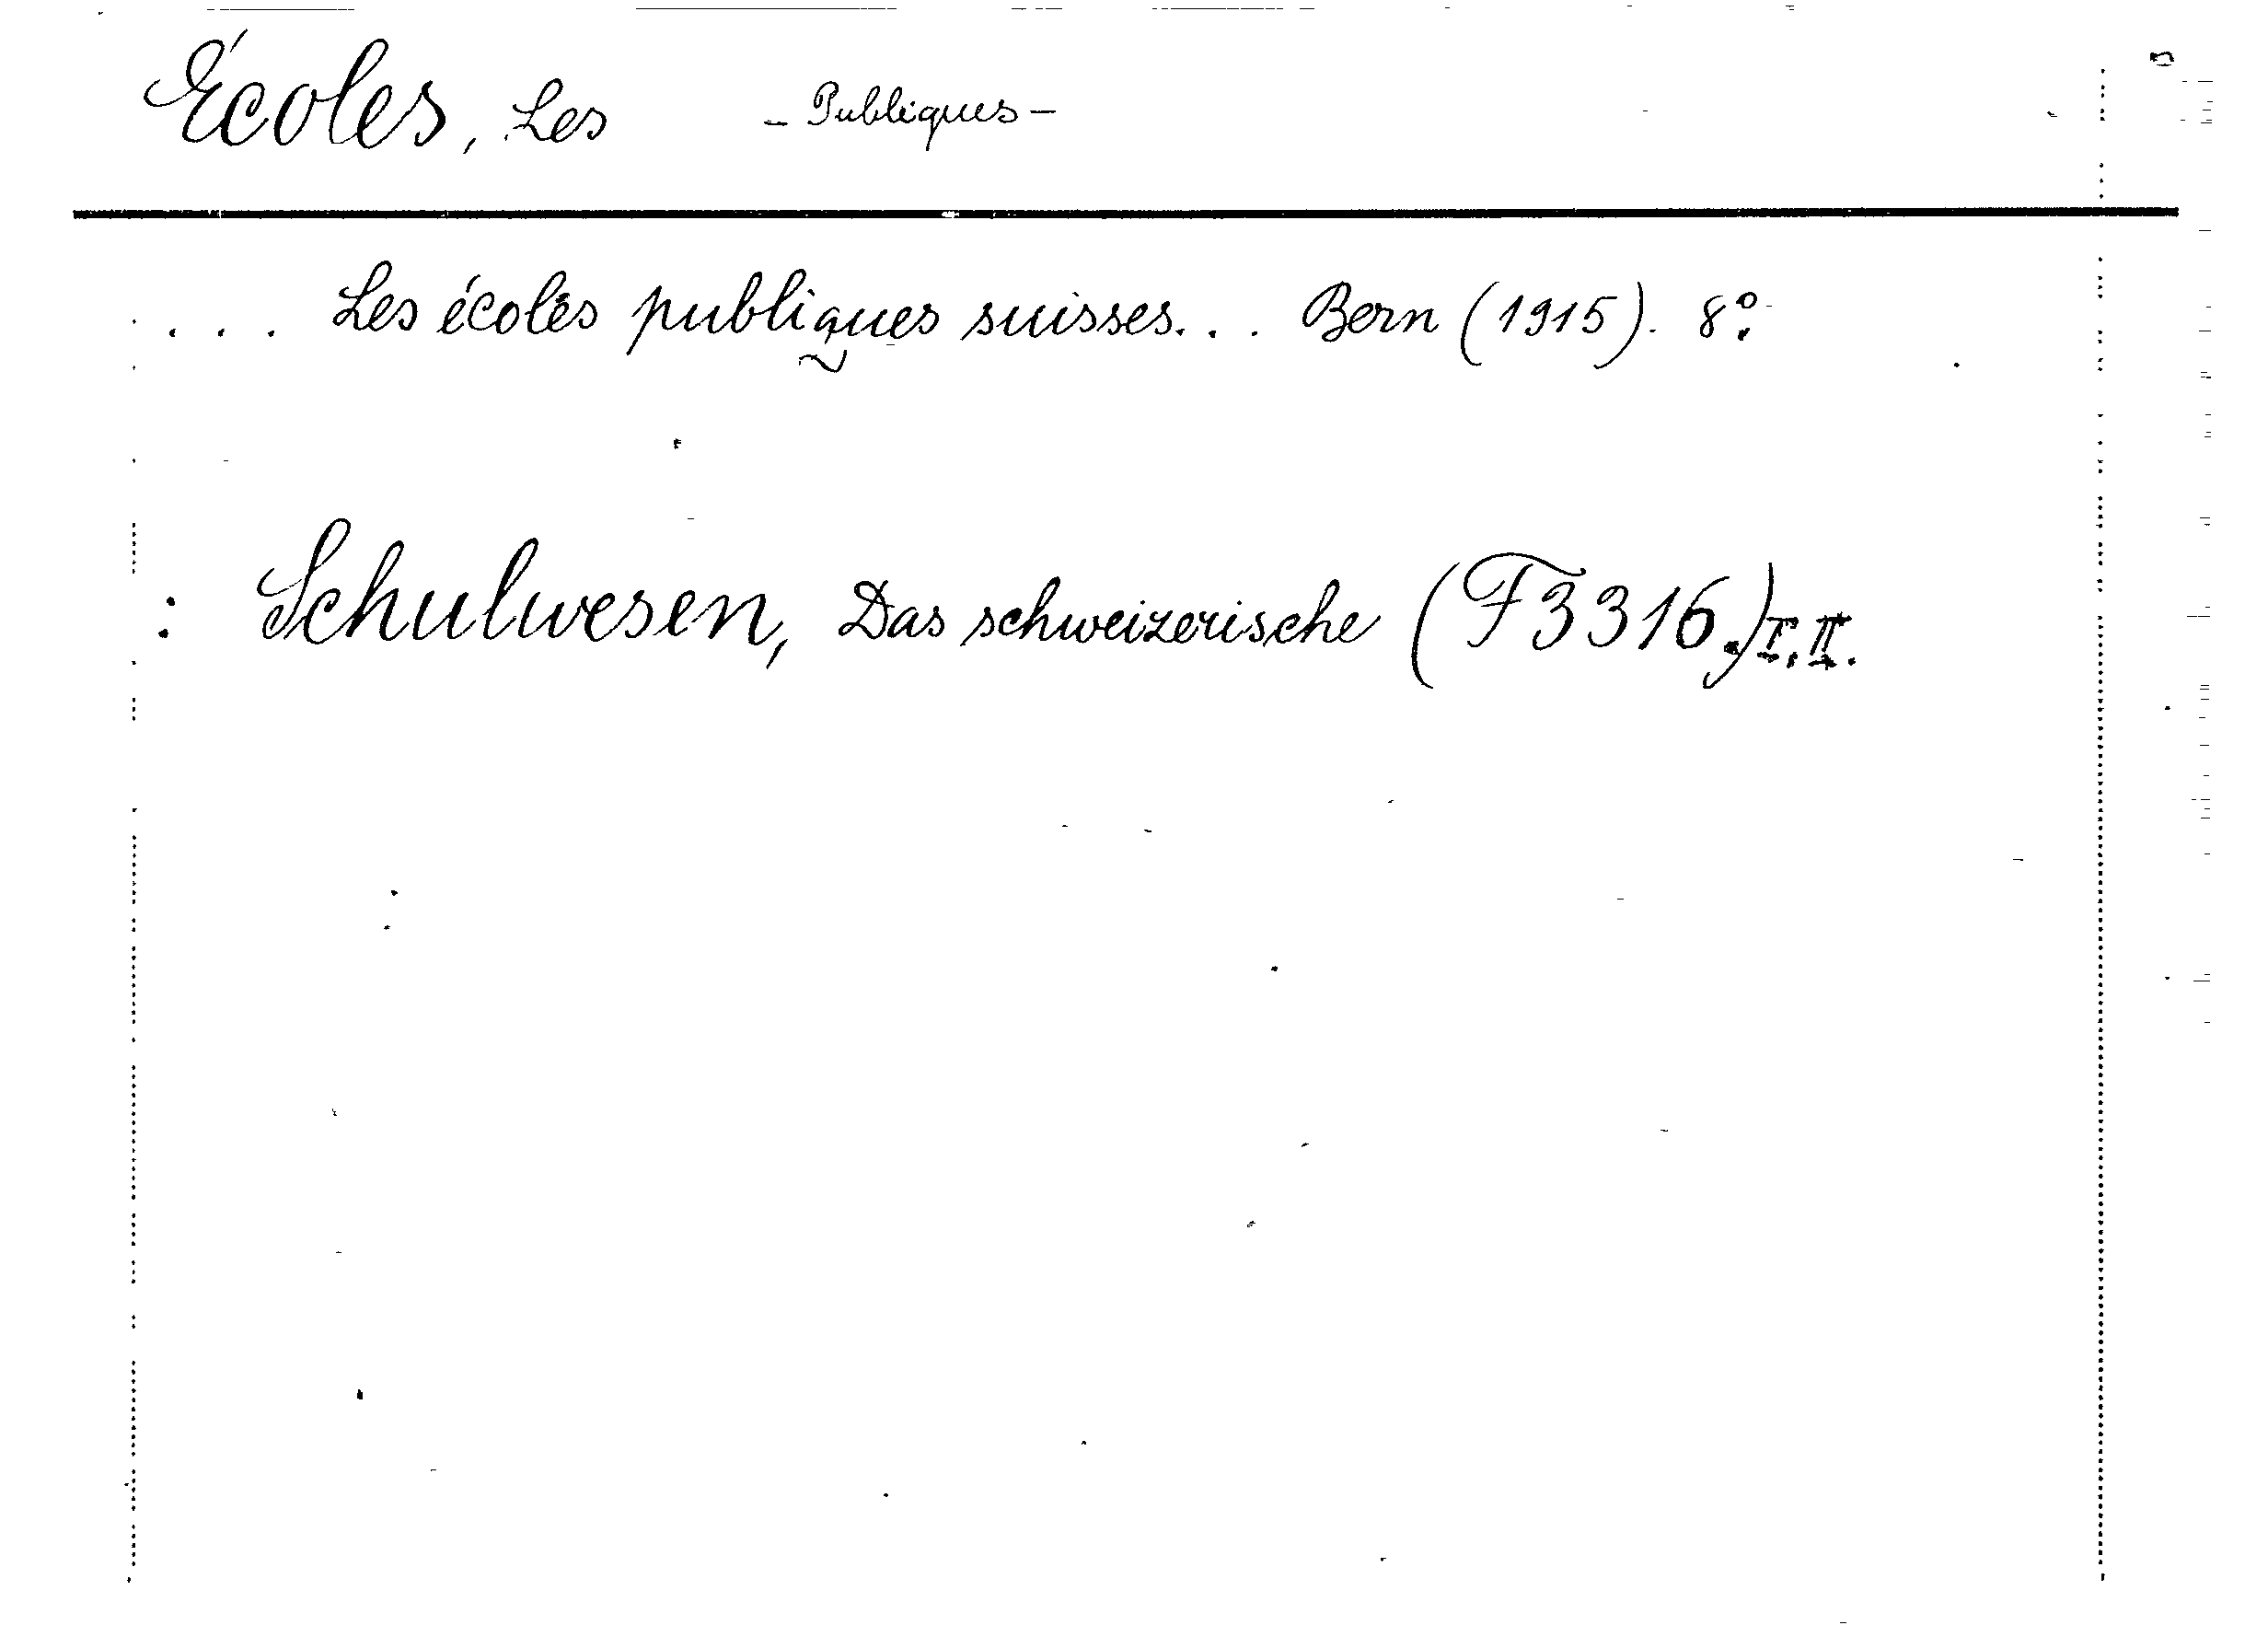 Écoles, Les - Publiques -
. . . Les écoles publiques suisses... Bern (1915). 8°.
: Schulwesen, Das schweizerische (F3316.) I. II.